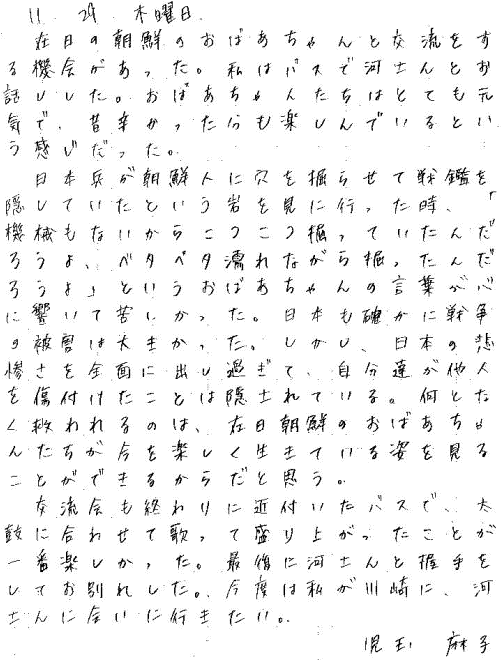 11. 29 木曜日.
在日の朝鮮のおばあちゃんと交流をす
る機会があった。私はバスで河さんとお
話しした。おばあちゃんたちはとても元
気で、昔辛かった分も楽しんでいるとい
う感じだった。
日本兵が朝鮮人に穴を掘らせて戦鑑を
隠していたという岩を見に行った時、「
機械もないからこつこつ掘っていたんだ
ろうよ、ベタベタ濡れながら掘ったんだ
ろうよ」というおばあちゃんの言葉が心
に響いて苦しかった。日本も確かに戦争
の被害は大きかった。しかし、日本の悲
惨さを全面に出し過ぎて、自分達が他人
を傷付けたことは隠されている。何とな
く救われるのは、在日朝鮮のおばあちゃ
んたちが今を楽しく生きている姿を見る
ことができるからだと思う。
交流会も終わりに近付いたバスで、太
鼓に合わせて歌って盛り上がったことが
一番楽しかった。最後に河さんと握手を
してお別れした。今度は私が川崎に、河
さんに会いに行きたい。
児玉 麻子